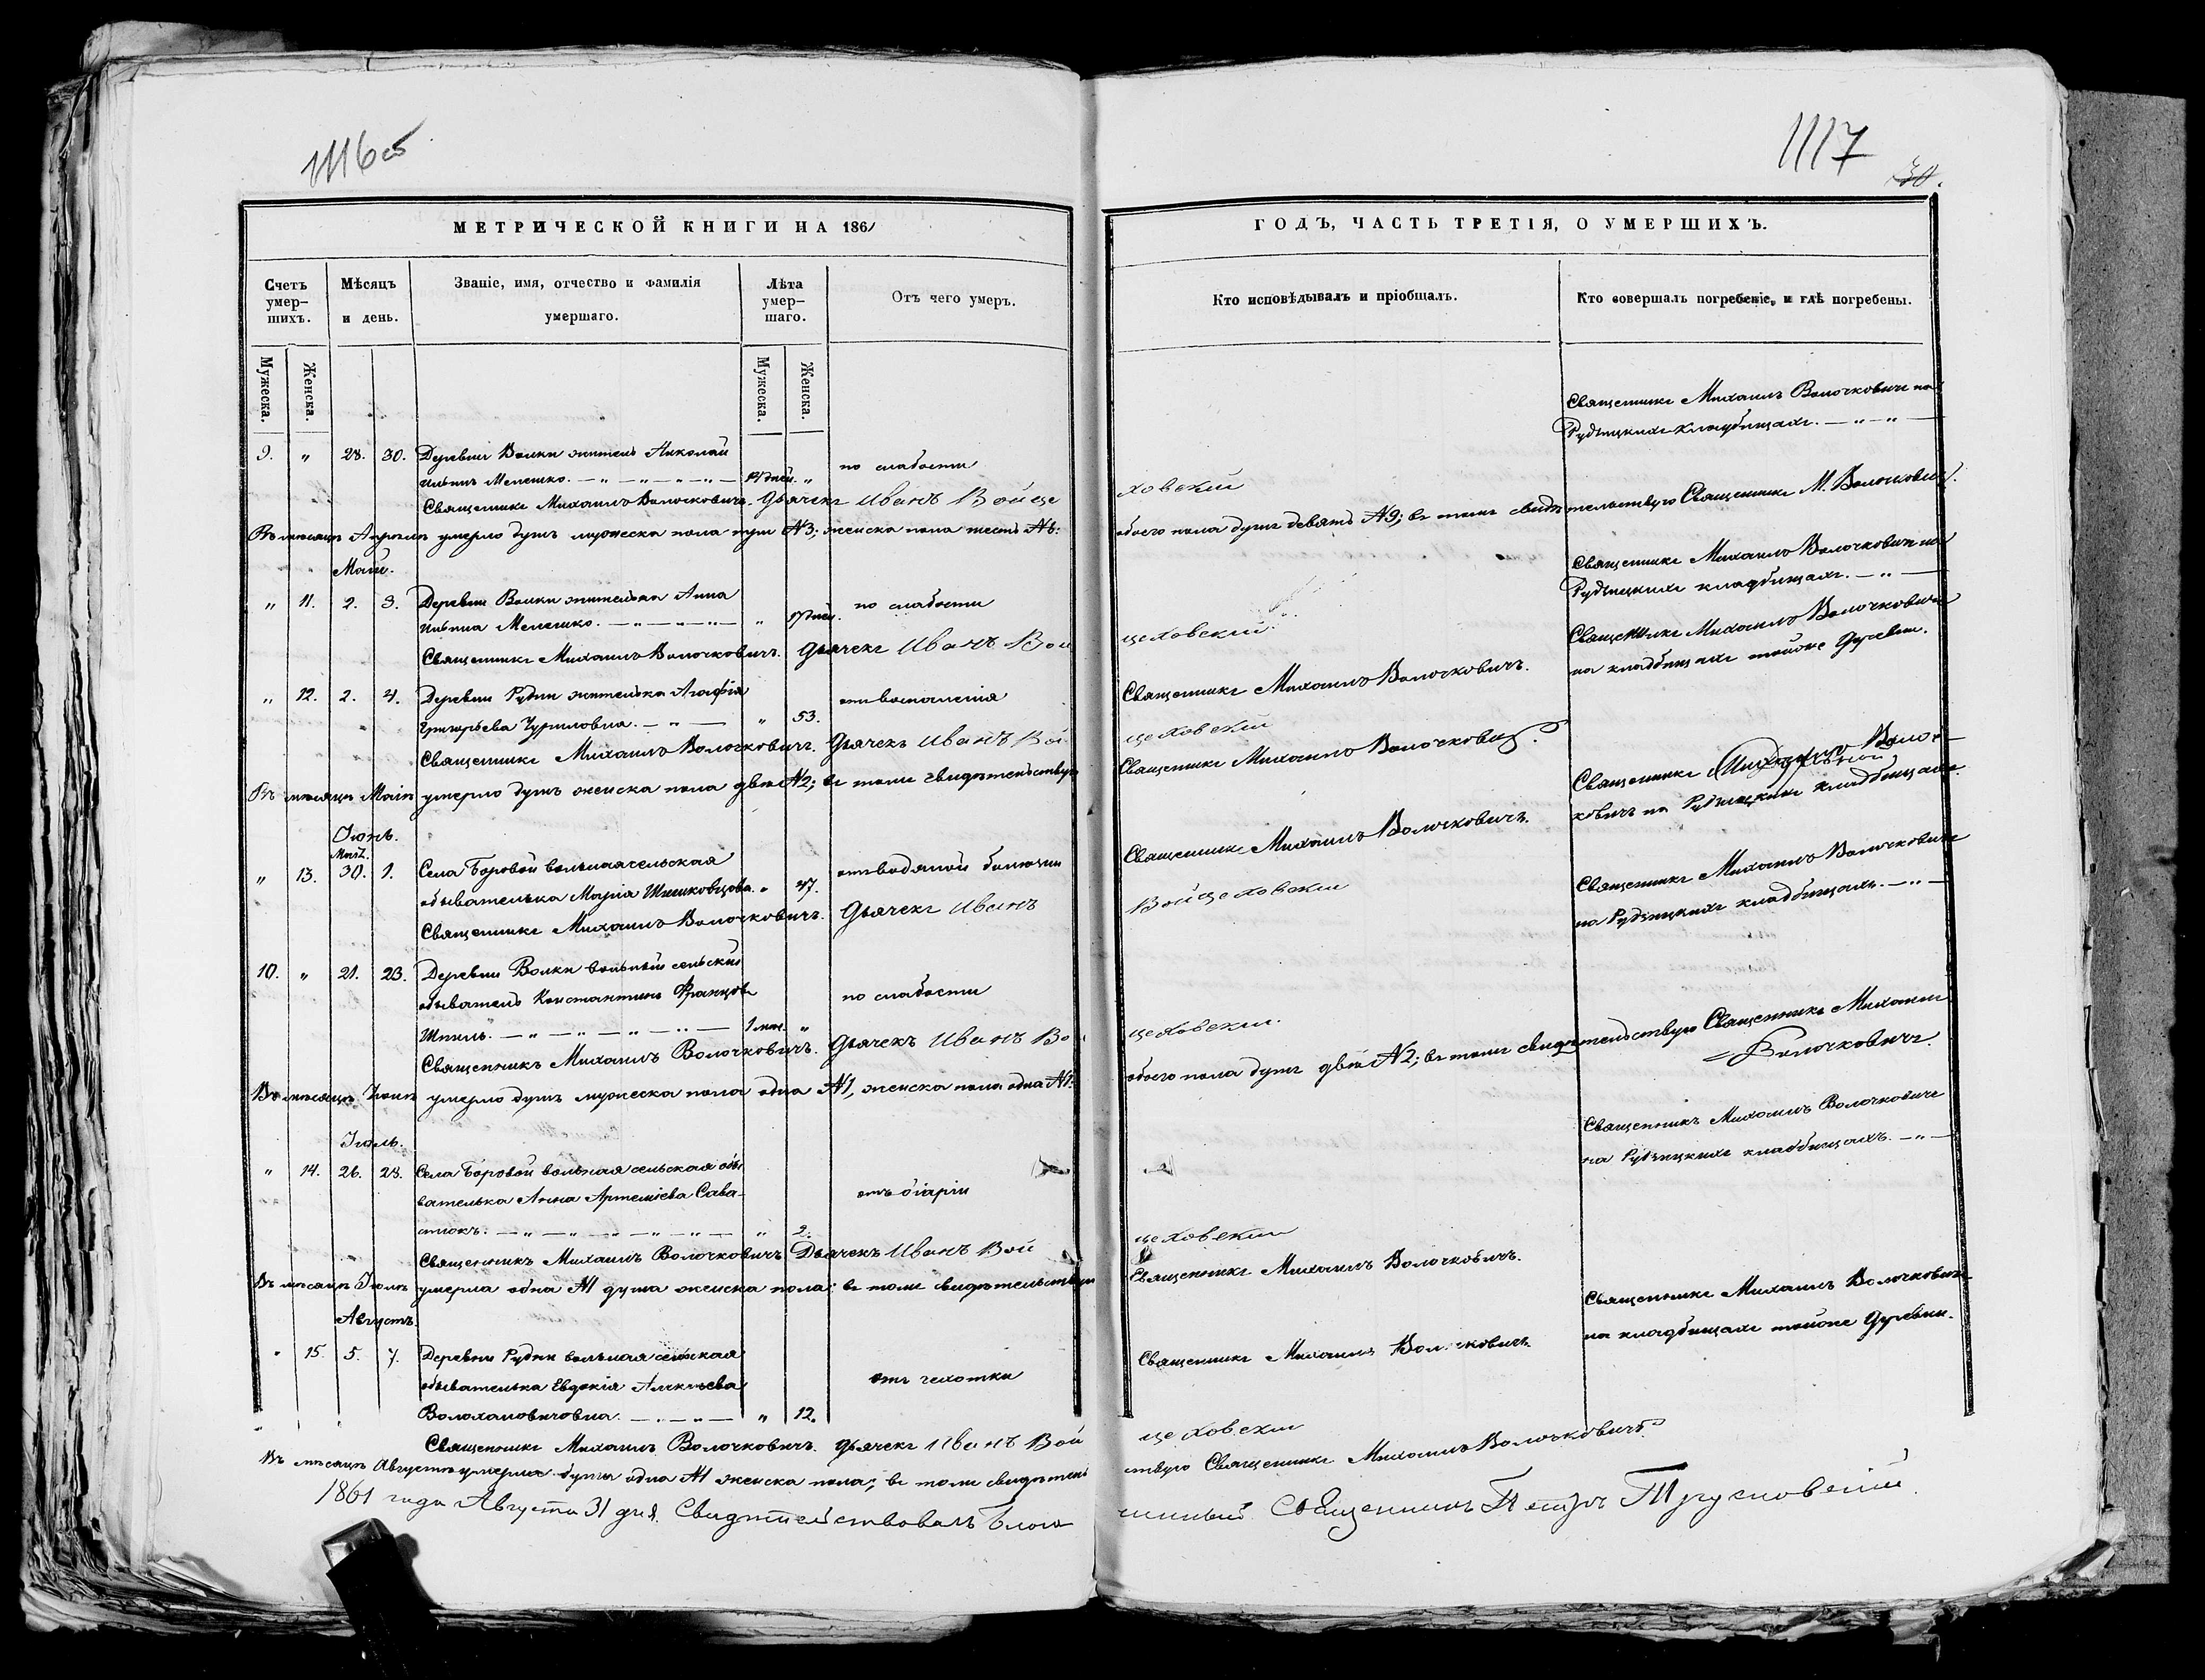 1116об
МЕТРИЧЕСКОЙ КНИГИ НА 1861
Счетъ умер-шихъ.
Мѣсяцъ и день.
Званіе, имя, отчество и фамилія умершаго.
Лѣта умер-шаго.
Отъ чего умеръ.
Мужеска.
Женска.
Мужеска.
Женска.
9. " 28. 30. Деревни Волки житель Николай
Ильинъ Мелешко. — " — " — " — " — 14 дней. " по слабости
Священникъ Михаилъ Волочковичъ. Дьячекъ Иванъ Войце
Въ мѣсяцѣ Апрѣлѣ умерло душъ мужеска пола три №3; женска пола шесть №6:
Май.
" 11. 2. 3. Деревни Волки жителька Анна
Ильина Мелешко. — " — " — " — " 17 дней. по слабости
Священникъ Михаилъ Волочковичъ. Дьячекъ Иванъ Вой
" 12. 2. 4. Деревни Рудни жителька Агафія
Григорьева Чуриловна. — " — " 53. отъ воспаленія
Священникъ Михаилъ Волочковичъ. Дьячекъ Иванъ Вой
Въ мѣсяцѣ Маіѣ умерло душъ женска пола двѣ №2; въ томъ свидѣтельствую
Іюнь.
Май.
" 13. 30. 1. Села Боровой вольная сельская
обывателька Марія " 47. отъ водяной болѣзни
Священникъ Михаилъ Волочковичъ. Дьячекъ Иванъ
10. " 21. 23. Деревни Волки вольный сельскій
обыватель Константинъ Францовъ
— " — " — " — " — 1 мѣс. " по слабости
Священникъ Михаилъ Волочковичъ. Дьячекъ Иванъ Вой
Въ мѣсяцѣ Іюнѣ умерло душъ мужеска пола одна №1, женска пола одна №1.
Іюль.
" 14. 26. 28. Села Боровой вольная сельская обы
вателька Анна Артеміева Сава-
стюкъ. — " — " — " — " — " — " 2. отъ діаріи
Священникъ Михаилъ Волочковичъ Дьячекъ Иванъ Вой
Въ мѣсяцѣ Іюлѣ умерла одна №1 душа женска пола; въ томъ свидѣтельствую
Августъ.
" 15. 5. 7. Деревни Рудни вольная сельская
обывателька Евдокія Алексѣева
— " — " 12. отъ чехотки
Священникъ Михаилъ Волочковичъ. Дьячекъ Иванъ Вой
Въ мѣсяцѣ Августѣ умерла душа одна №1 женска пола; въ томъ свидѣтель
1861 года Августа 31 дня. Свидѣтельствовалъ Благо
1117
30.
ГОДЪ, ЧАСТЬ ТРЕТІЯ, О УМЕРШИХЪ.
Кто исповѣдывалъ и пріобщалъ.
Кто совершалъ погребеніе, и гдѣ погребены.
Священникъ Михаилъ Волочковичъ на
кладбищахъ. — " — " —
ховскій
обоего пола душъ девять №9; въ томъ свидѣтельствую Священникъ М. Волочковичъ.
Священникъ Михаилъ Волочковичъ на
кладбищахъ. — " —
цеховскій.
Священникъ Михаилъ Волочковичъ
на кладбищахъ тойже деревни.
Священникъ Михаилъ Волочковичъ.
цеховскій
Священникъ Михаилъ Волочковичъ.
Священникъ Михаилъ Волоч-
ковичъ на кладбищахъ.
Священникъ Михаилъ Волочковичъ.
Войцеховскій
Священникъ Михаилъ Волочковичъ
на кладбищахъ. — " —
цеховскій.
обоего пола душъ двѣ №2; въ томъ свидѣтельствую Священникъ Михаилъ
Волочковичъ.
Священникъ Михаилъ Волочковичъ
на кладбищахъ. — " —
цеховскій
Священникъ Михаилъ Волочковичъ.
Священникъ Михаилъ Волочковичъ
на кладбищахъ тойже деревни.
Священникъ Михаилъ Волочковичъ.
цеховскій
ствую Священникъ Михаилъ Волочковичъ.
чинный Священникъ Петръ